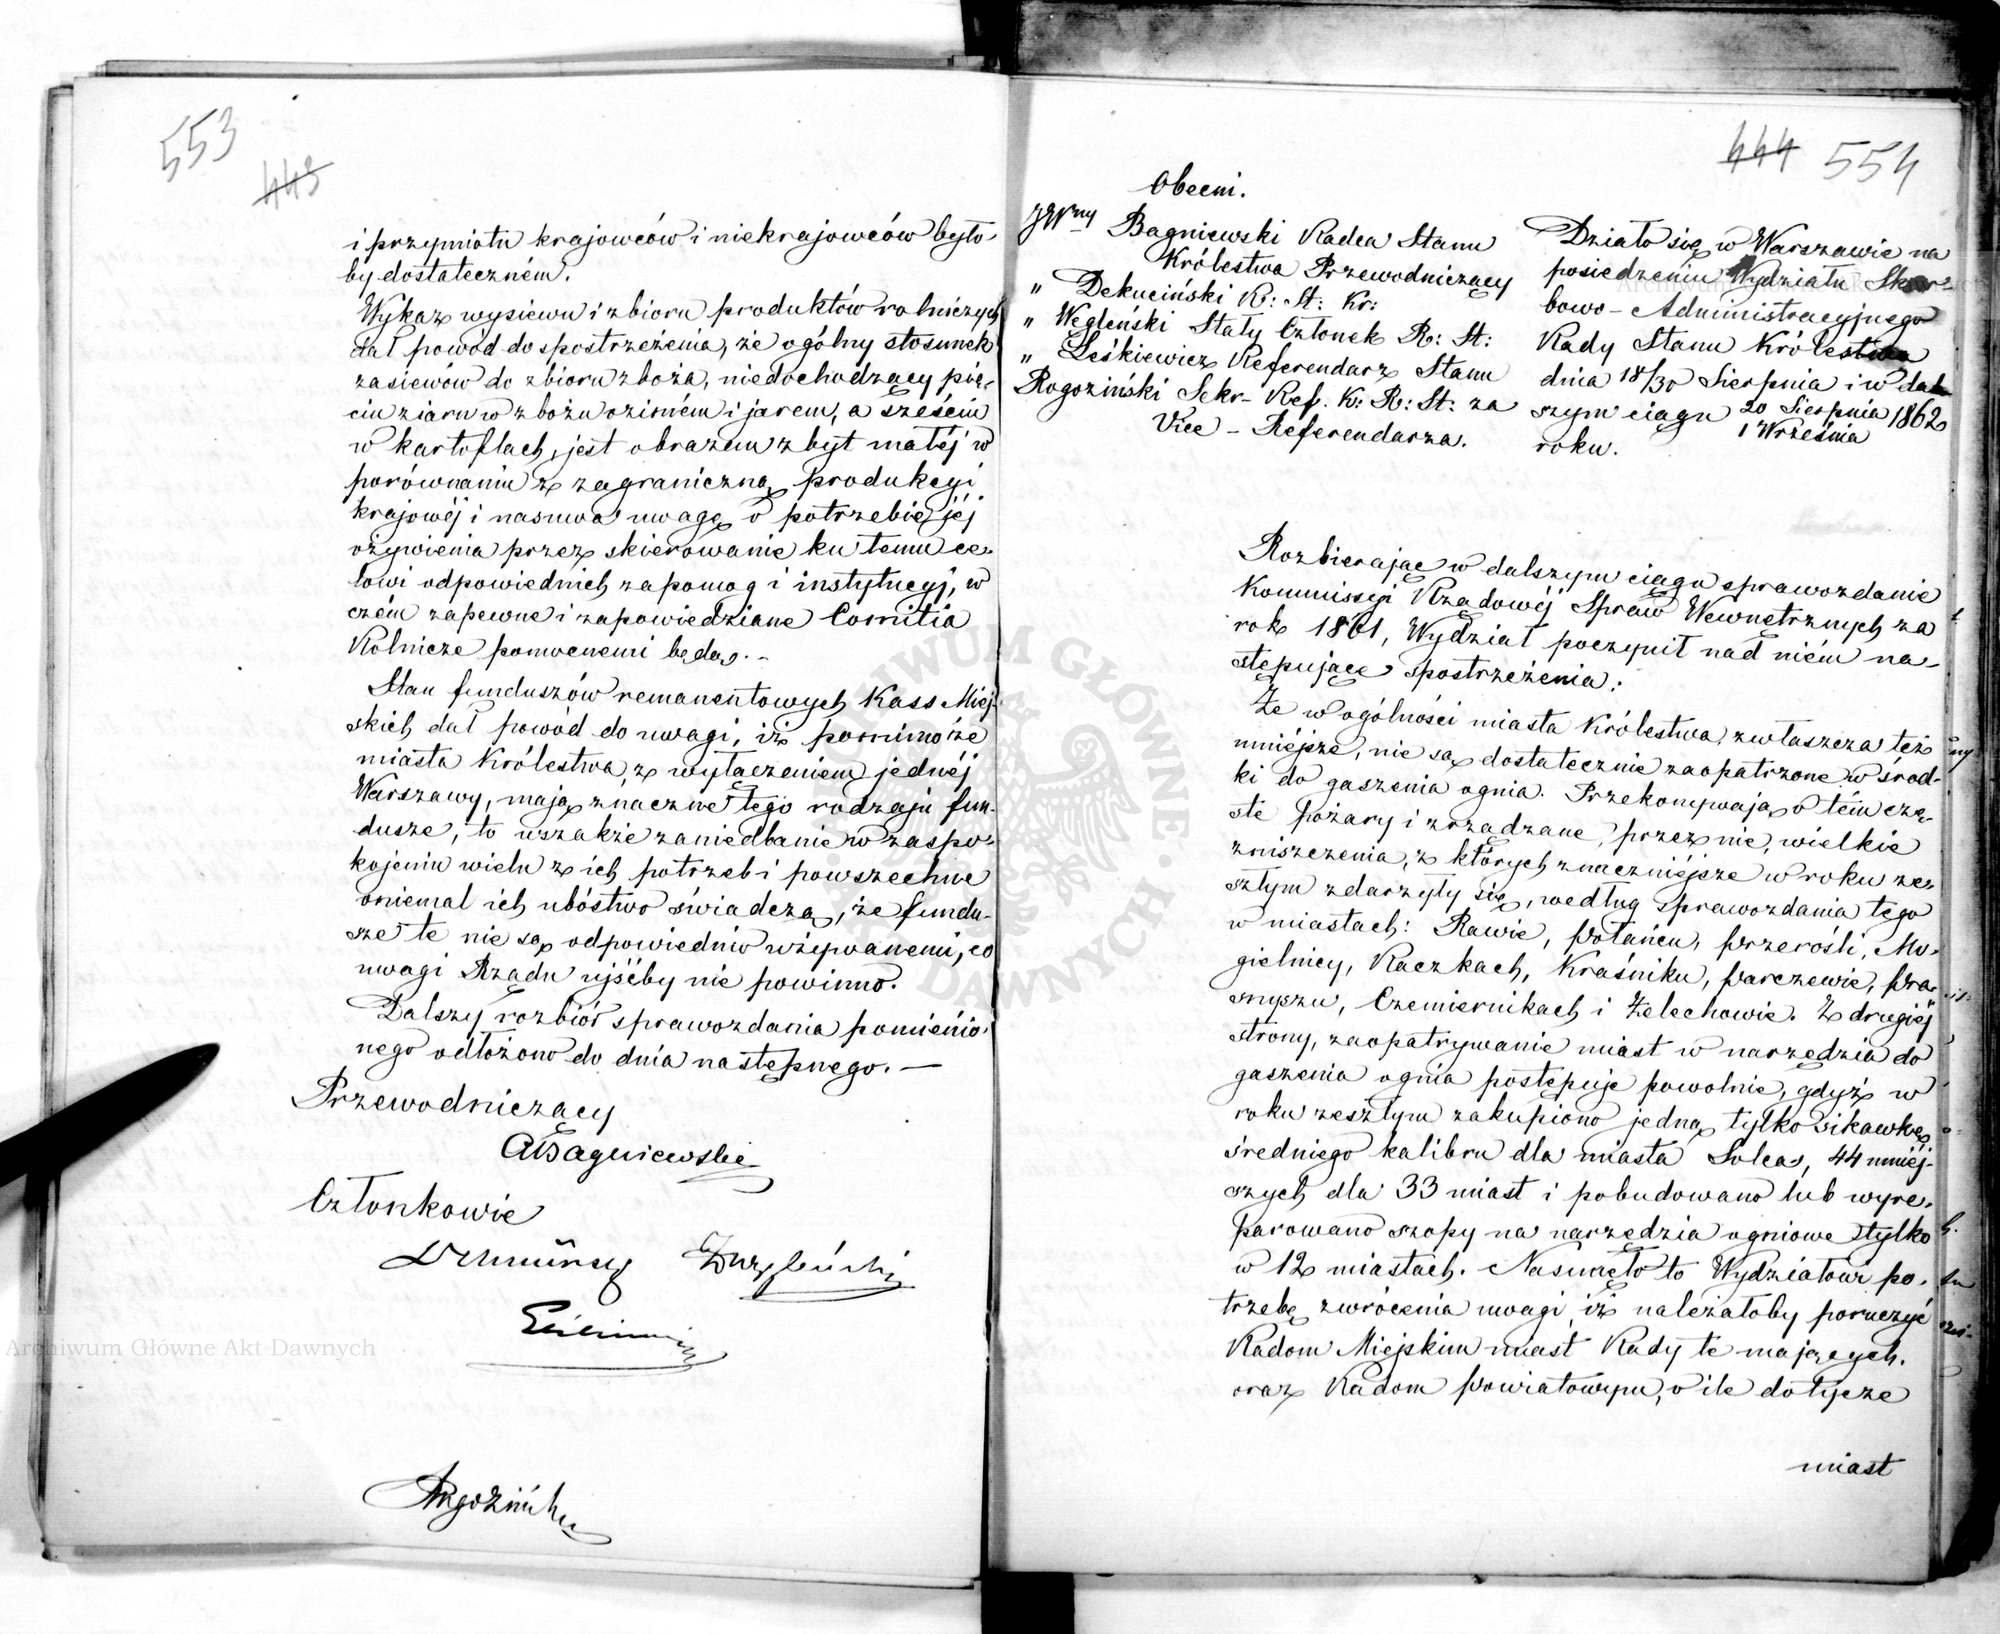 553
443
i przymiotu krajowców i niekrajowców było
by dostateczném.
Wykaz wysiewu i zbioru produktów rolniczych
dał powód do spostrzeżenia, że ogólny stosunek
zasiewów do zbioru zboża, niedochodzący pię-
ciu ziarn w zbożu oziméem i jarem, a sześciu
w kartoflach, jest obrazem zbyt małéj w
porównaniu z zagraniczną produkcyi
krajowéj i nasuwa uwagę o potrzebie jéj
ożywienia przez skierowanie ku temu ce-
lowi odpowiednich zapomog i instytucyj, w
czém zapewne i zapowiedziane Comitia
Rolnicze pomocnemi będą. -
Stan funduszów remanentowych Kass Miej-
skich dał powód do uwagi, iż pomimo że
miasta Królestwa, z wyłączeniem jednéj
Warszawy, mają znaczne tego rodzaju fun-
dusze, to wszakże zaniedbanie w zaspo-
kojeniu wielu z ich potrzeb i powszechne
oniemal ich ubóstwo świadczą, że fundu-
sze te nie są odpowiednio używanemi, co
uwagi Rządu ujśćby nie powinno.
Dalszy rozbiór sprawozdania pomienio-
nego odłożono do dnia następnego. —
Przewodniczący
ABagniewski
Członkowie
Węgleński
Rogoziński
Archiwum Główne Akt Dawnych
444 554
Obecni.
JWny Bagniewski Radca Stanu
Królestwa Przewodniczący
" Dekuciński R: St: Kr:
" Węgleński Stały Członek R: St:
" Leśkiewicz Referendarz Stanu
Rogoziński Sekr- Ref. K: R: St: za
Vice - Referendarza.
Działo się w Warszawie na
posiedzeniu Wydziału Skar-
bowo - Administracyjnego
Rady Stanu Królestwa
dnia 18/30 Sierpnia i w dal
szym ciągu 20 Sierpnia 1862
1 Września
roku.
Rozbierając w dalszym ciągu sprawozdanie
Kommissyi Rządowéj Spraw Wewnętrznych za
rok 1861, Wydział poczynił nad niém na-
stępujące spostrzeżenia:
Że w ogólności miasta Królestwa, zwłaszcza też
mniéjsze, nie są dostatecznie zaopatrzone w środ-
ki do gaszenia ognia. Przekonywają o tém czę-
ste pożary i zrządzane, przez nie, wielkie
zniszczenia, z których znaczniéjsze w roku ze-
szłym zdarzyły się, według sprawozdania tego
w miastach: Rawie, Połańcu, Przerośli, Mo-
gielnicy, Raczkach, Kraśniku, Parczewie, Pra-
snyszu, Czemiernikach i Żelechowie. Z drugiéj
strony, zaopatrywanie miast w narzędzia do
gaszenia ognia postępuje powolnie, gdyż w
roku zeszłym zakupiono jedną tylko sikawkę
średniego kalibru dla miasta Solca, 44 mniéj-
szych dla 33 miast i pobudowano lub wyre-
parowano szopy na narzędzia ogniowe tylko
w 12 miastach. Nasunęło to Wydziałowi po-
trzebę zwrócenia uwagi, iż należałoby poruczyć
Radom Miejskim miast Rady te mających,
oraz Radom Powiatowym, o ile dotycze
miast
ARCHIWUM GŁÓWNE AKT DAWNYCH